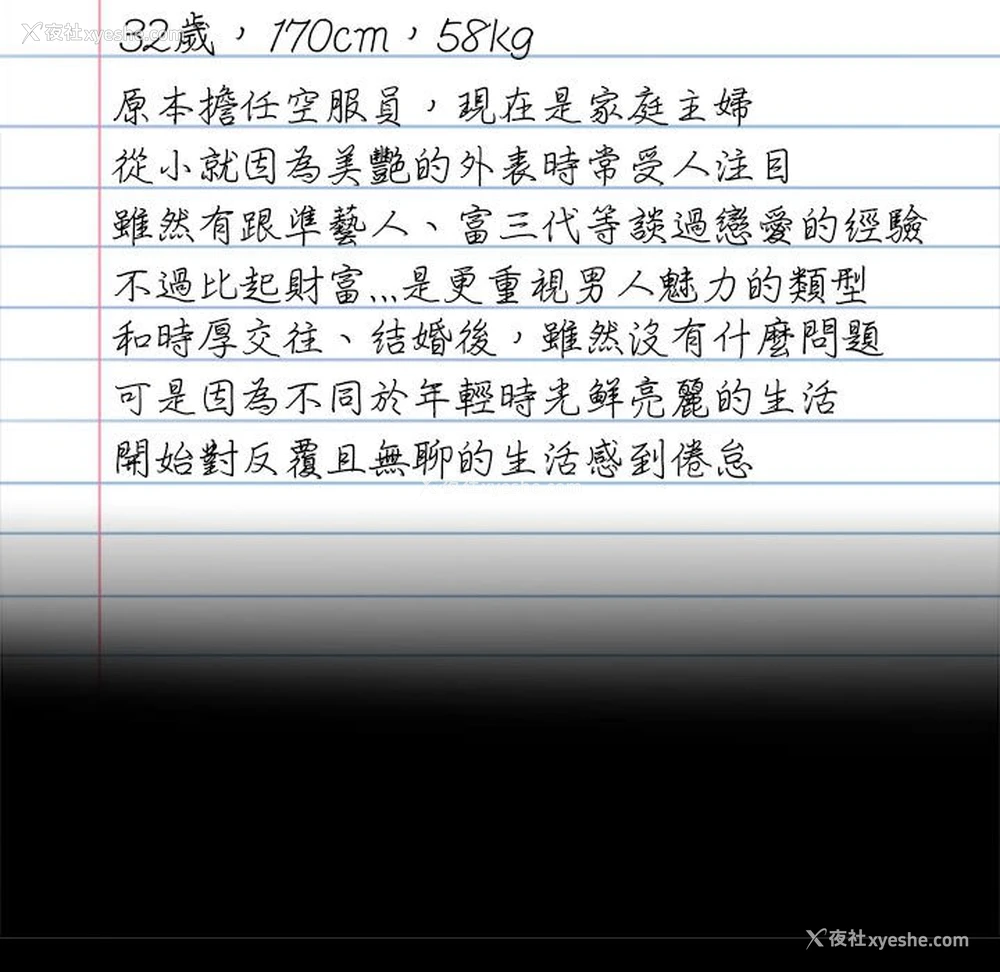 夜社xyeshe.com
32歲，170cm，58kg
原本擔任空服員，現在是家庭主婦
從小就因為美艷的外表時常受人注目
雖然有跟準藝人、富三代等談過戀愛的經驗
不過比起財富...是更重視男人魅力的類型
和時厚交往、結婚後，雖然沒有什麼問題
可是因為不同於年輕時光鮮亮麗的生活
開始對反覆且無聊的生活感到倦怠
夜社xyeshe.com
夜社xyeshe.com